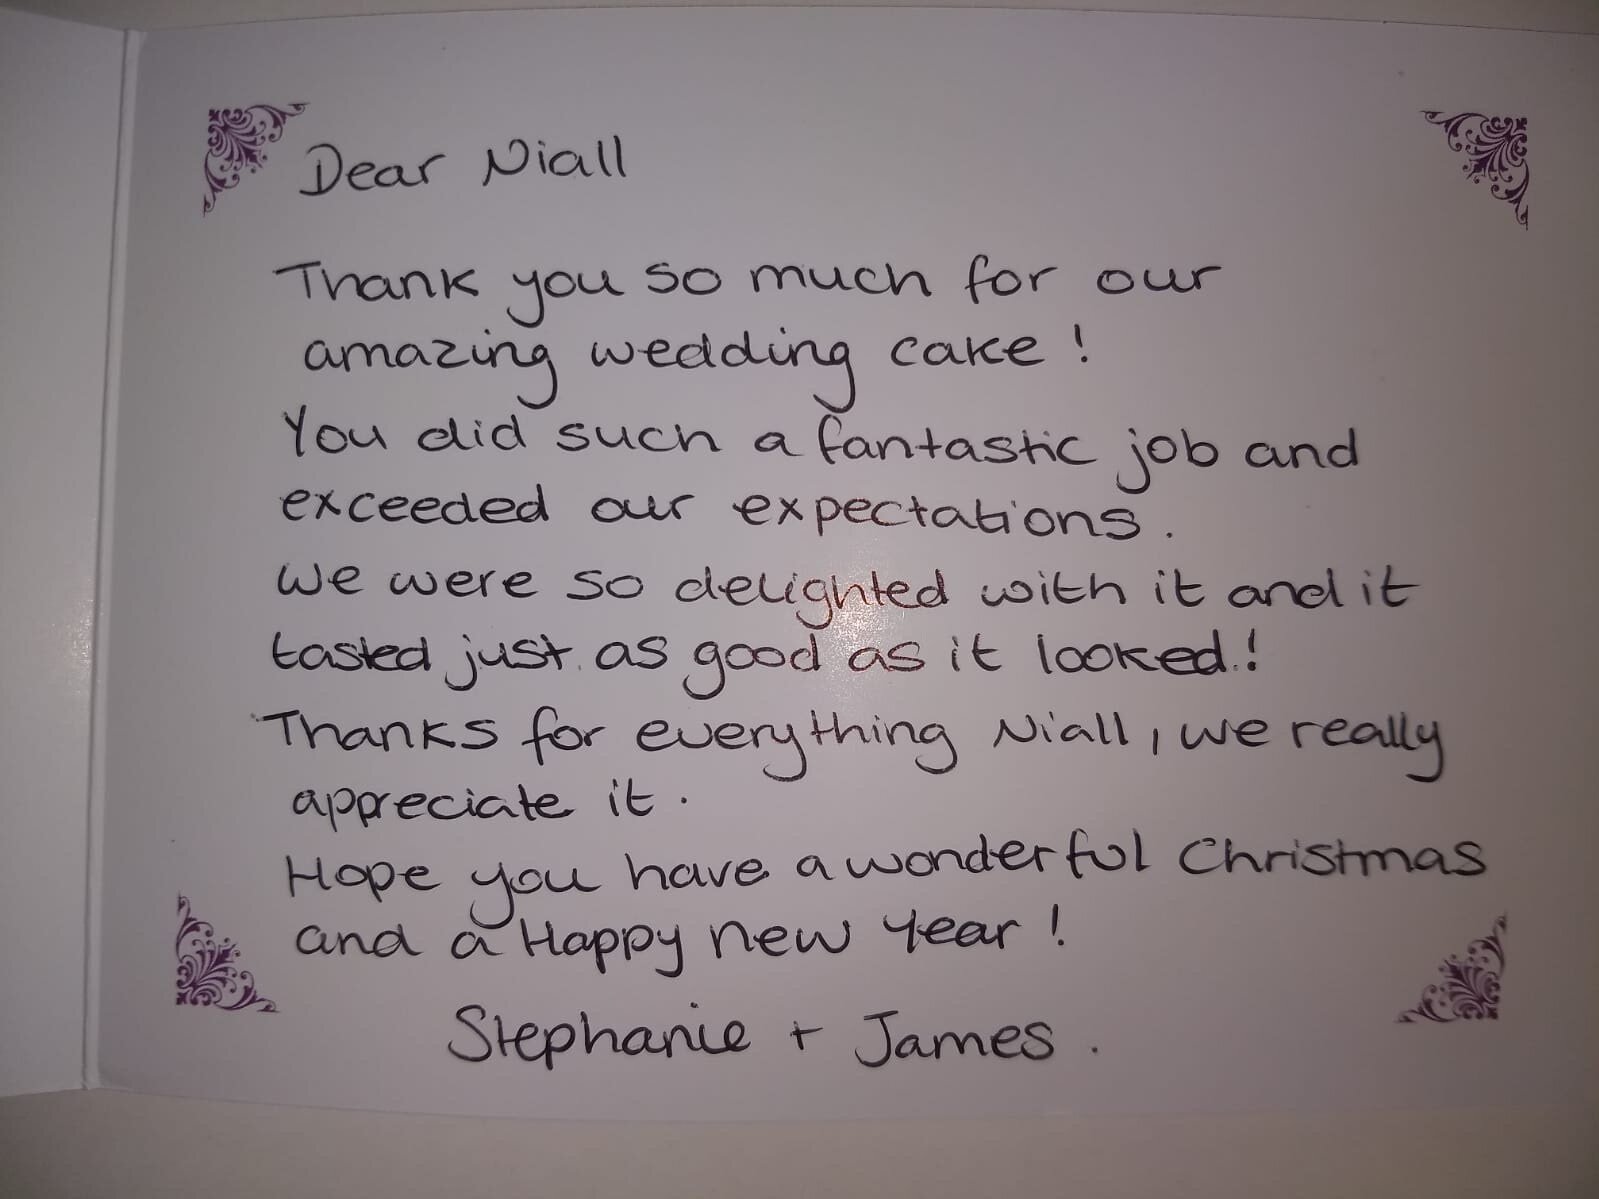 Dear Niall
Thank you so much for our
amazing wedding cake!
You did such a fantastic job and
exceeded our expectations.
We were so delighted with it and it
tasted just as good as it looked!
Thanks for everything Niall, we really
appreciate it.
Hope you have a wonderful Christmas
and a Happy new Year!
Stephanie + James.